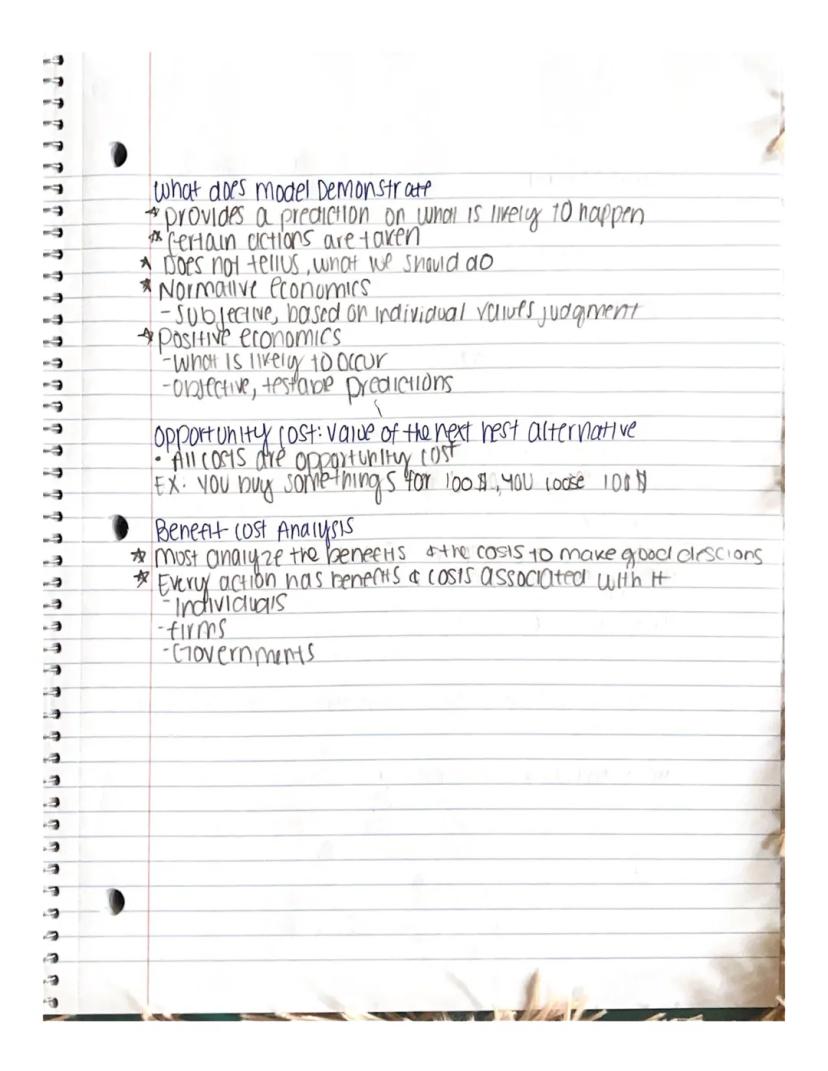 What does model Demonstrate
* provides a prediction on what is likely to happen
* Certain actions are taken
* Does not tell us, what we should do
* Normative Economics
- Subjective, based on individual values judgment
* Positive economics
- What is likely to occur
- objective, testable predictions
Opportunity cost: value of the next best alternative
• All costs are opportunity cost
EX. you buy something s for 100$, you loose 100$
Benefit cost Analysis
* Most analyze the benefits & the costs to make good descions
* Every action has benefits & costs associated with it
- Individuals
- firms
- Governments